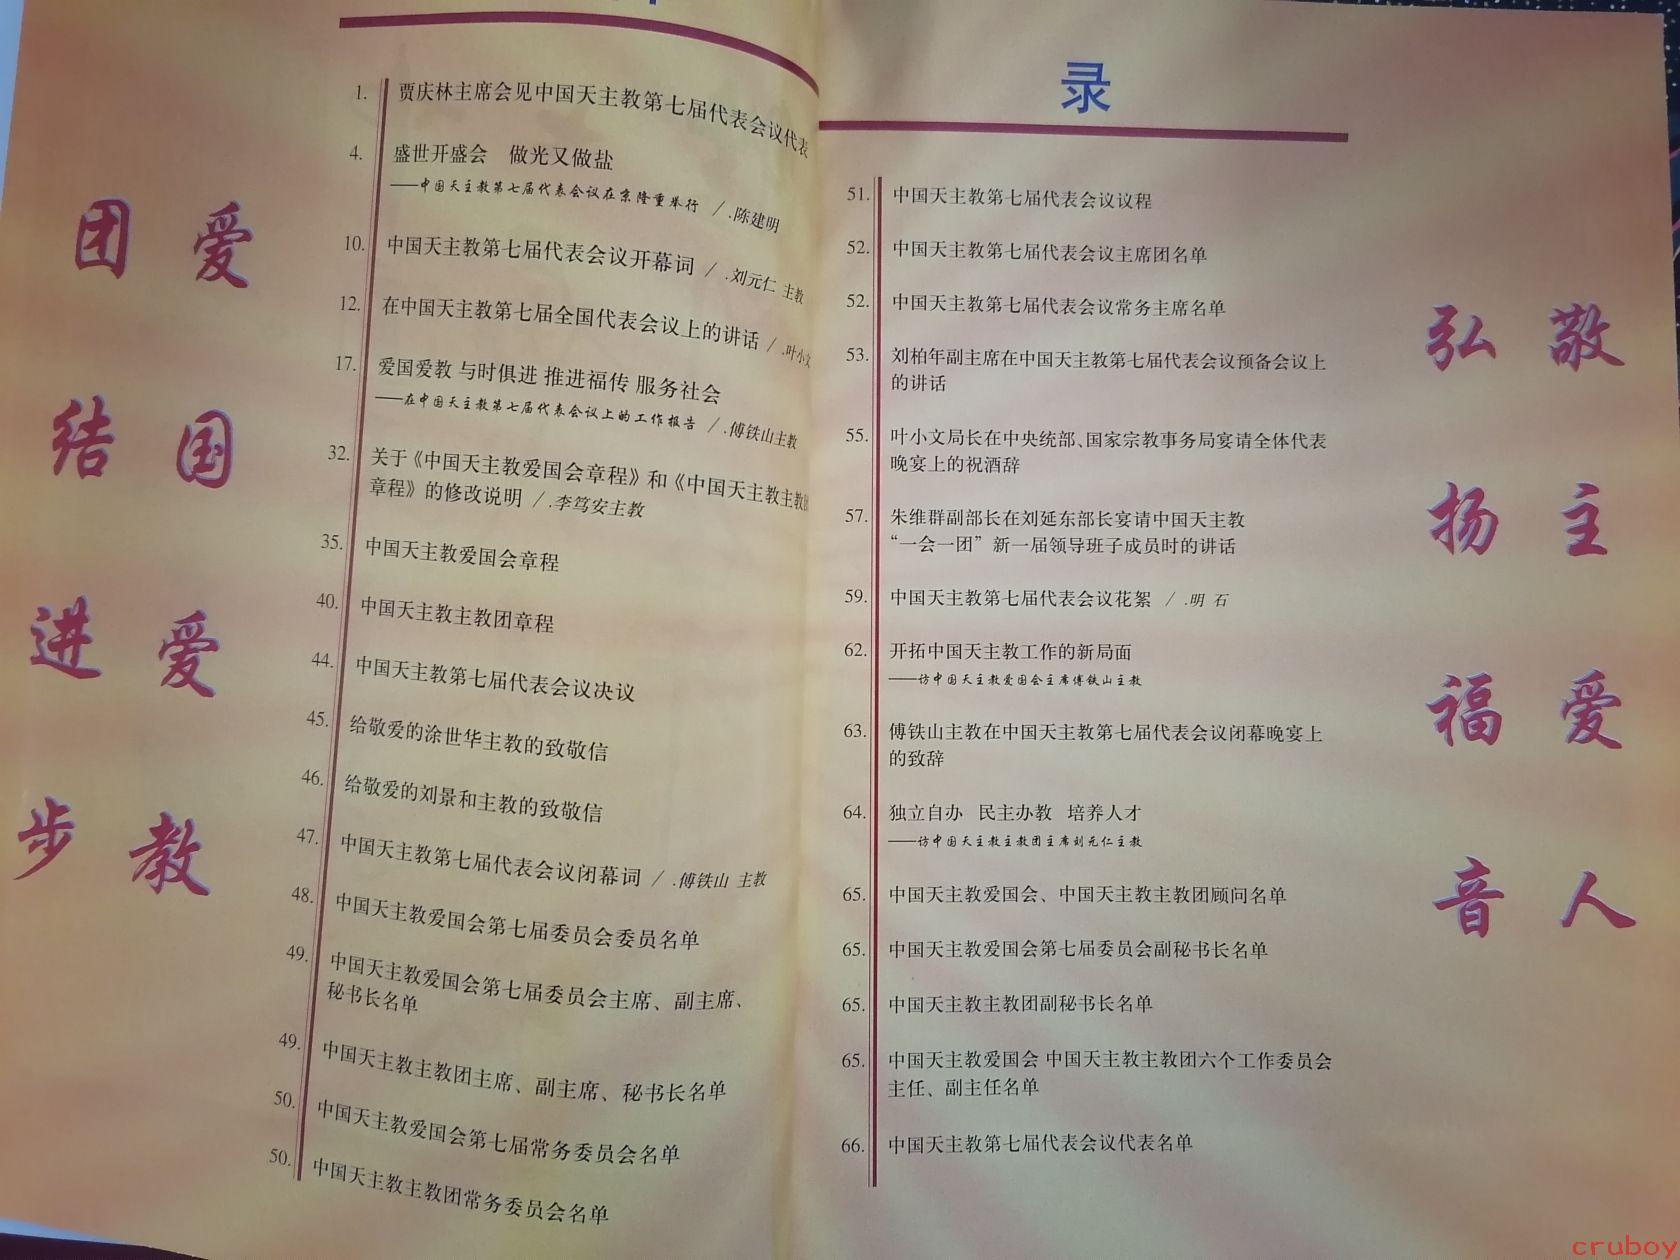 爱国爱教
团结进步
1. 贾庆林主席会见中国天主教第七届代表会议代表
4. 盛世开盛会 做光又做盐
——中国天主教第七届代表会议在京隆重举行 / .陈建明
10. 中国天主教第七届代表会议开幕词 / .刘元仁 主教
12. 在中国天主教第七届全国代表会议上的讲话 / .叶小文
17. 爱国爱教 与时俱进 推进福传 服务社会
——在中国天主教第七届代表会议上的工作报告 / .傅铁山主教
32. 关于《中国天主教爱国会章程》和《中国天主教主教团
章程》的修改说明 / .李笃安主教
35. 中国天主教爱国会章程
40. 中国天主教主教团章程
44. 中国天主教第七届代表会议决议
45. 给敬爱的涂世华主教的致敬信
46. 给敬爱的刘景和主教的致敬信
47. 中国天主教第七届代表会议闭幕词 / .傅铁山 主教
48. 中国天主教爱国会第七届委员会委员名单
49. 中国天主教爱国会第七届委员会主席、副主席、
秘书长名单
49. 中国天主教主教团主席、副主席、秘书长名单
50. 中国天主教爱国会第七届常务委员会名单
50. 中国天主教主教团常务委员会名单
录
51. 中国天主教第七届代表会议议程
52. 中国天主教第七届代表会议主席团名单
52. 中国天主教第七届代表会议常务主席名单
53. 刘柏年副主席在中国天主教第七届代表会议预备会议上
的讲话
55. 叶小文局长在中央统部、国家宗教事务局宴请全体代表
晚宴上的祝酒辞
57. 朱维群副部长在刘延东部长宴请中国天主教
“一会一团”新一届领导班子成员时的讲话
59. 中国天主教第七届代表会议花絮 / .明 石
62. 开拓中国天主教工作的新局面
——访中国天主教爱国会主席傅铁山主教
63. 傅铁山主教在中国天主教第七届代表会议闭幕晚宴上
的致辞
64. 独立自办 民主办教 培养人才
——访中国天主教主教团主席刘元仁主教
65. 中国天主教爱国会、中国天主教主教团顾问名单
65. 中国天主教爱国会第七届委员会副秘书长名单
65. 中国天主教主教团副秘书长名单
65. 中国天主教爱国会 中国天主教主教团六个工作委员会
主任、副主任名单
66. 中国天主教第七届代表会议代表名单
敬主爱人
弘扬福音
cruboy